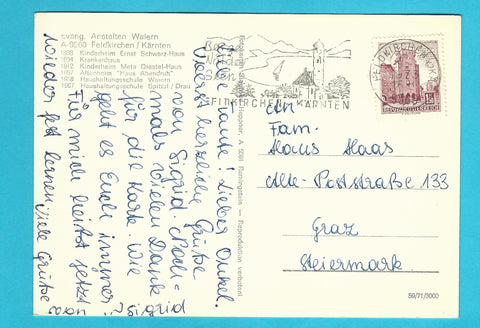 Evang. Anstalten Waiern
A-9560 Feldkirchen / Kärnten
1893 Kinderheim Ernst Schwarz-Haus
1894 Krankenhaus
1912 Kinderheim Meta Diestel-Haus
1957 Altenheim "Haus Abendruh"
1958 Haushaltungsschule Waiern
1967 Haushaltungsschule Spittal / Drau
Liebe Tante! Lieber Onkel.
Zuerst herzliche Grüße
von Sigrid. Noch-
mals vielen Dank
für die Karte. Wie
geht es Euch immer
Für mich heißt jetzt
wieder fest lernen. Viele Grüße
von Sigrid
Berge
Wald
Seen
FELDKIRCHEN KÄRNTEN
FELDKIRCHEN
REPUBLIK ÖSTERREICH
An
Fam.
Haus Haas
Alte-Poststraße 133
Graz
Steiermark
Reproduktion verboten!
59/71/3000